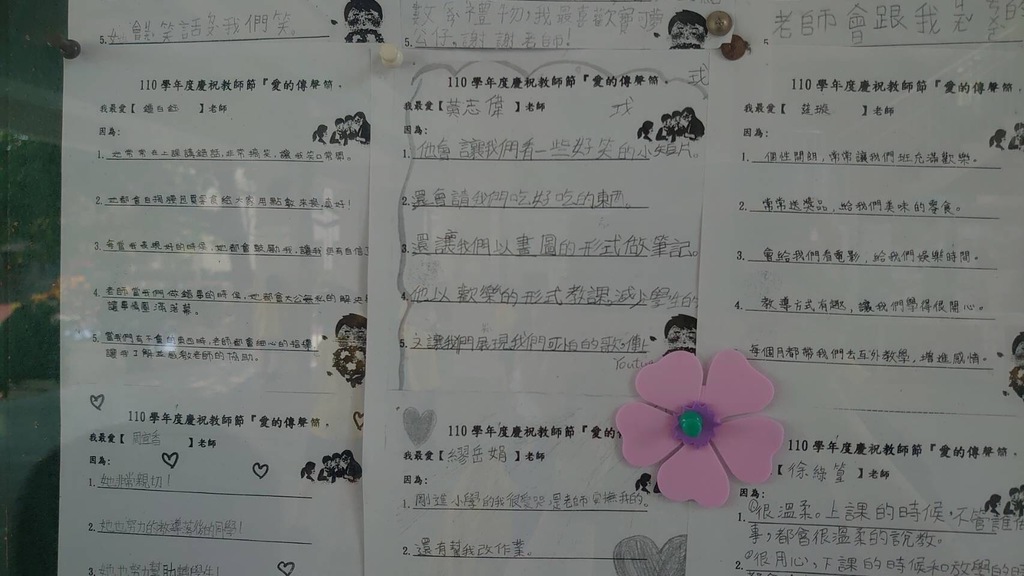 5. 她會說笑話逗我們笑。
110 學年度慶祝教師節『愛的傳聲筒,
我最愛【 】老師
因為:
1. 他常常在上課講錯話,非常搞笑,讓我笑口常開。
2. 他都會自掏腰包買零食給大家用點數來換,真好!
3. 每當我表現好的時候,他都會鼓勵我,讓我更有自信
4. 老師當我們做錯事的時候,他都會大公無私的解決
讓事情圓滿落幕。
5. 當我們有不會的東西時,老師都會細心的指導
讓我了解並感激老師的協助。
110 學年度慶祝教師節『愛的傳聲筒,
我最愛【 】老師
因為:
1. 她非常親切!
2. 她也努力的教導落後的同學!
3. 她也努力幫助
禮物,我最喜歡寶可夢
5. 公仔,謝謝老師!
110 學年度慶祝教師節『愛的傳聲筒,
我最愛【黃志偉】老師
因為:
1. 他會讓我們看一些好笑的小短片。
2. 還會請我們吃好吃的東西。
3. 還讓我們以畫圖的形式做筆記。
4. 他以歡樂的形式教課減少學生的
5. 又讓我們展現我們可怕的歌
110 學年度慶祝教師節『愛的
我最愛【繆岳娟】老師
因為:
1. 剛進小學的我很愛哭,是老師安撫我的。
2. 還有幫我改作業。
老師會跟我
110 學年度慶祝教師節『愛的傳聲筒,
我最愛【 】老師
因為:
1. 個性開朗,常常讓我們班充滿歡樂。
2. 常常送獎品,給我們美味的零食。
3. 會給我們看電影,給我們娛樂時間。
4. 教導方式有趣,讓我們學得很開心。
每個月都帶我們去戶外教學,增進感情。
110 學年度慶祝教師節『愛的傳聲筒,
【徐絲】老師
因為:
1. ①很溫柔。上課的時候,不管誰做
事,都會很溫柔的說教。
②很用心,下課的時候和放學的時